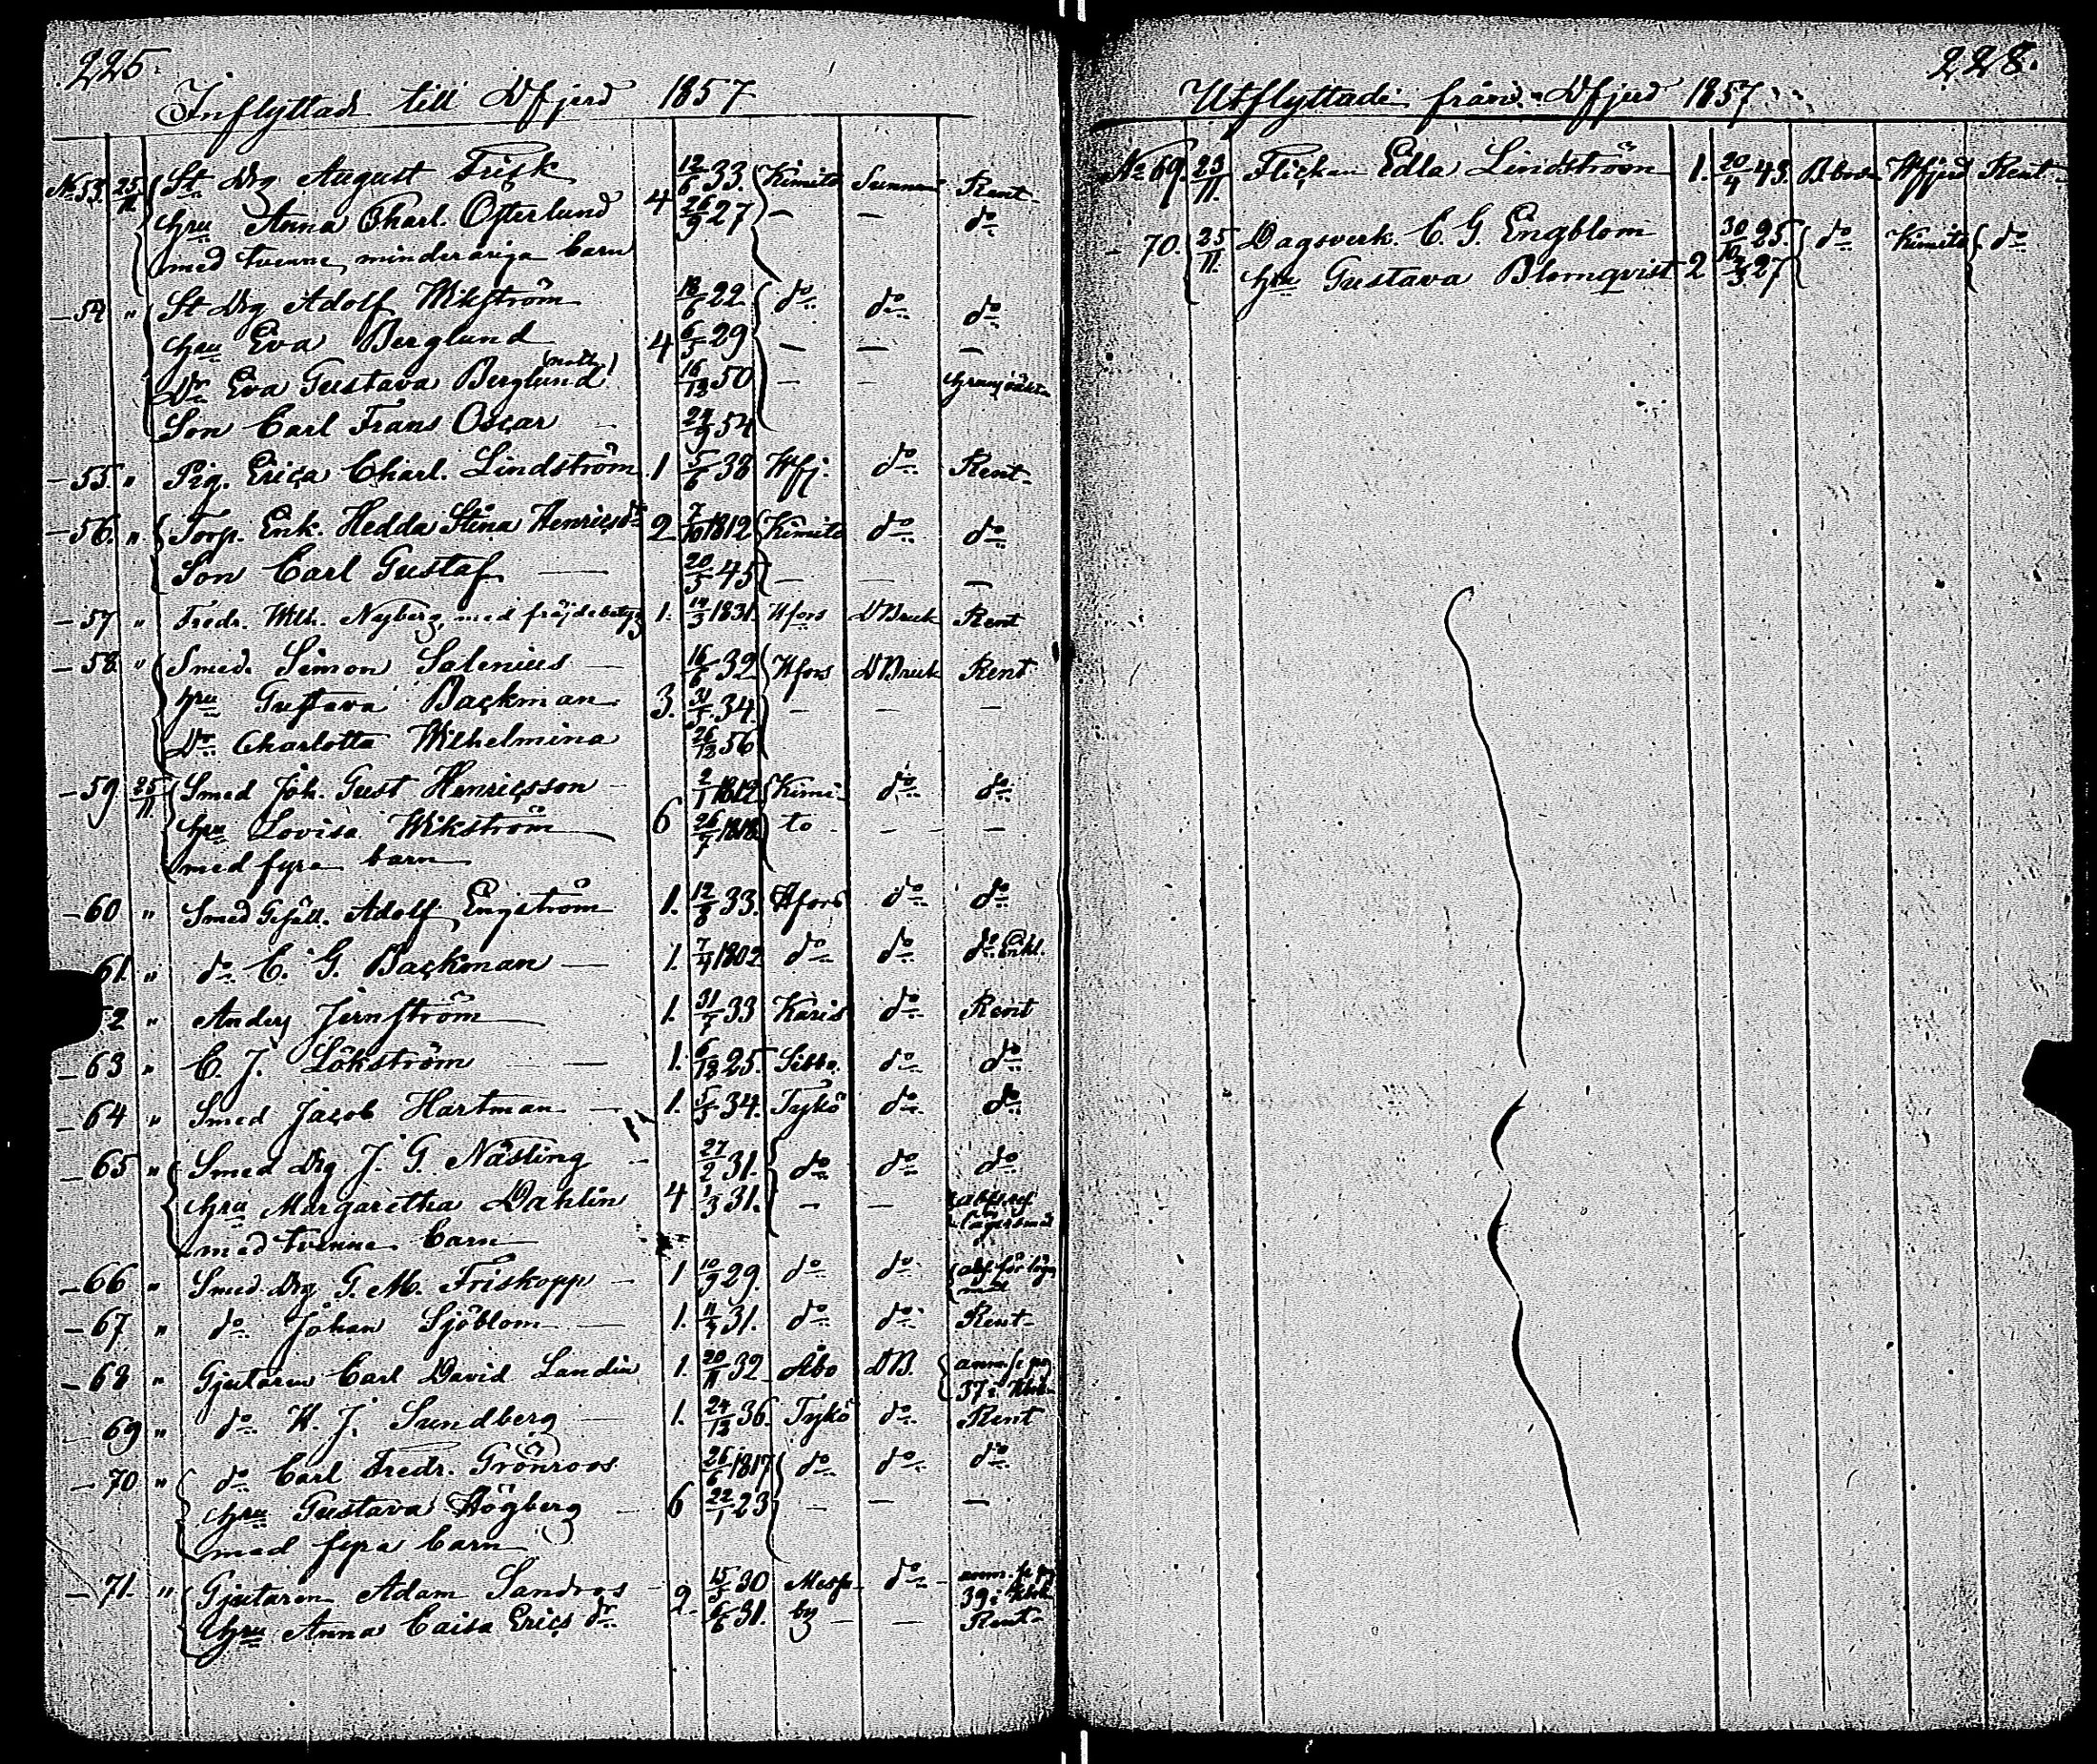 225.
Inflyttade till Dfjerd 1857
No 53. 25/11 St Drg August Frisk 12/6 33. Kimito Sunnan Rent.
hru Anna Charl. Österlund 4 26/9 27 — — do
med tvenne minderåriga barn
— 54 " St Drg Adolf Wikström 18/6 22 do do do
hru Eva Berglund 4 6/5 29 — — —
Dr Eva Gustava Berglund 16/12 50 — —
Son Carl Frans Oscar — 24/9 54
— 55 " Pig. Erica Charl. Lindström 1 5/6 38 Wfj. do Rent.
— 56 " Torp. Enk. Hedda Stina Henricsdr 2 7/10 1812 Kimito do do
Son Carl Gustaf — 20/5 45 — — —
— 57 " Fredr. Wilh. Nyberg med fräjdebetyg 1. 14/3 1831. Hfors D Bruk Rent
— 58 " Smed. Simon Salenius — 16/6 32 Hfors D Bruk Rent
hru Gustava Backman 3. 31/5 34. — — —
Dr Charlotta Wilhelmina 26/12 56
— 59 25/11 Smed Joh. Gust Henricsson — 2/1 1812 Kimi- do do
hru Lovisa Wikström 6 26/7 1818 to — —
med fyra barn
— 60 " Smed Gesäll. Adolf Engström 1. 12/8 33. Hfors do do
61. " do C. G. Backman — 1. 7/4 1802 do do do Enkl.
2 " Anders Jernström 1. 31/7 33 Karis do Rent
— 63 " C. J. Lökström — 1. 6/12 25. Sibbo. do do
— 64 " Smed Jacob Hartman — 1. 5/5 34. Tykö do do
— 65 " Smed Drg J. G. Nästing — 27/2 31. do do do
hru Margaretha Dahlin 4 1/3 31. — —
med tvenne barn
— 66 " Smed Drg G. M. Friskopp — 1 10/9 29. do do
— 67 " do Johan Sjöblom — 1. 11/3 31. do do Rent.
— 68 " Gjutaren Carl David Landin 1. 20/11 32 Åbo DB. anm. se pag.
37 i Kbok.
— 69 " do K. J. Sundberg — 1. 24/12 36. Tykö do Rent
— 70 " do Carl Fredr. Grönroos 26/6 1817 do do do
hru Gustava Högberg — 6 22/1 23 — — —
med fyra barn
— 71. " Gjutaren Adam Sandros — 15/5 30 do anm. se pag
hru Anna Caisa Erics dr 2. 6/6 31. by — — 39 i Kbok
Rent.
228.
Utflyttade från Dfjerd 1857.
No 69. 23/11. Flickan Edla Lindström 1. 20/4 43. Wfjerd Rent.
— 70. 25/11. Dagsverk. C. G. Engblom 30/10 25. do Kimito do
hru Gustava Blomqvist 2 2/3 27